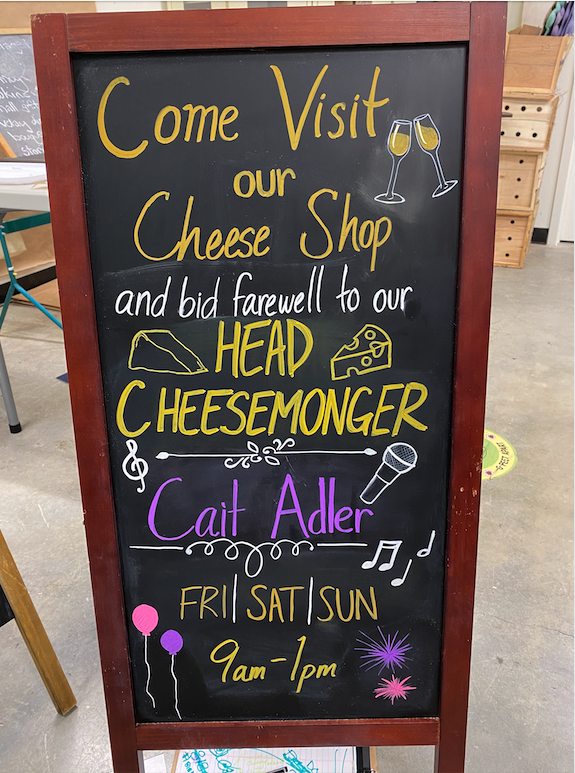 Come Visit
our
Cheese Shop
and bid farewell to our
HEAD
CHEESEMONGER
Cait Adler
FRI|SAT|SUN
9am-1pm